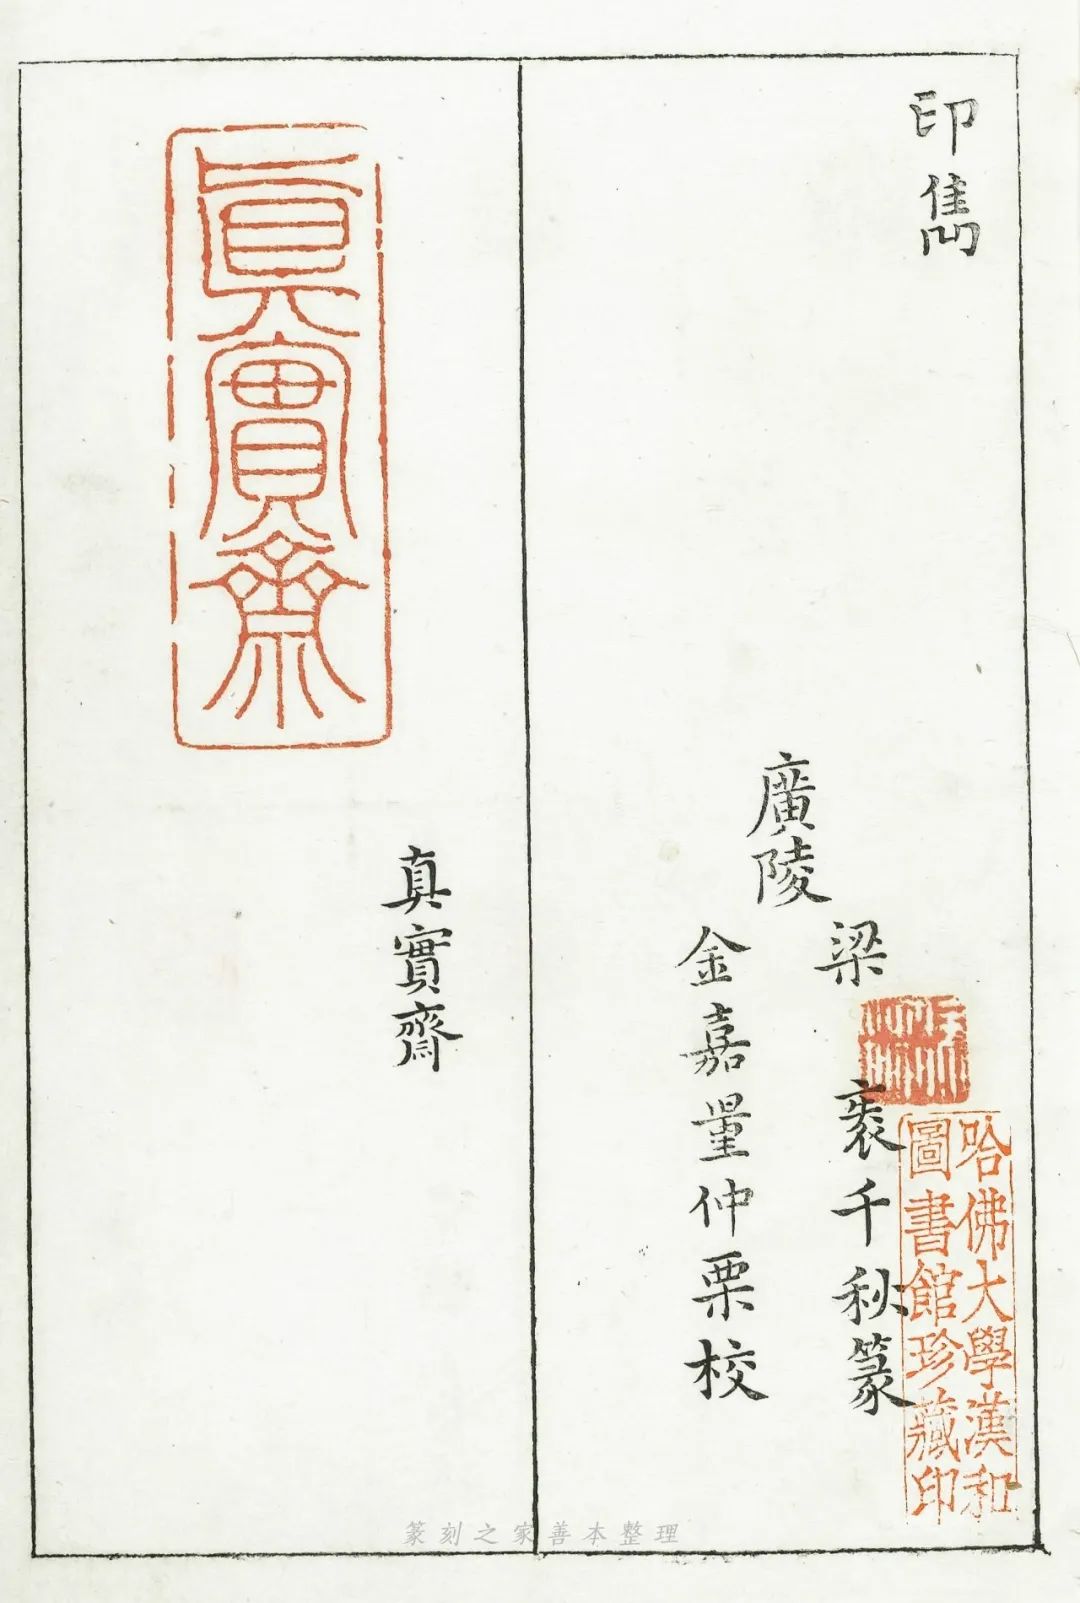 印雋
廣陵
梁袠千秋篆
金嘉量仲栗校
哈佛大學漢和
圖書館珍藏印
真實齋
真實齋
篆刻之家善本整理